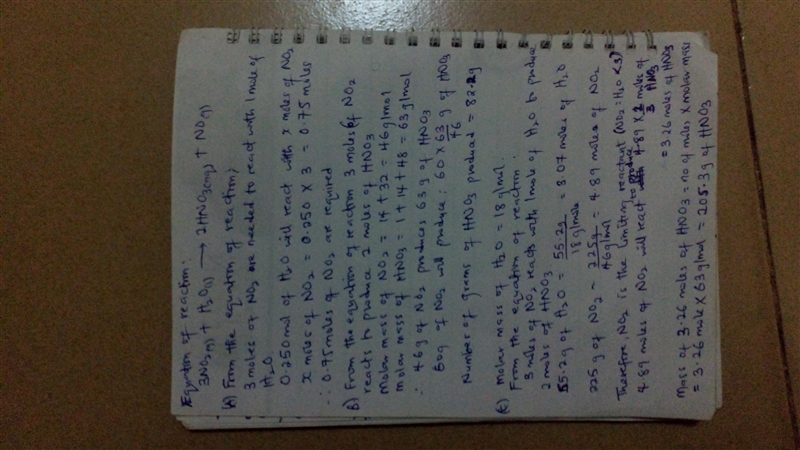 Equation of reaction:
3NO2(g) + H2O(l) → 2HNO3(aq) + NO(g)
(A) From the equation of reaction,
3 moles of NO2 are needed to react with 1 mole of
H2O
0.250 mol of H2O will react with x moles of NO2
x moles of NO2 = 0.250 X 3 = 0.75 moles
∴ 0.75 moles of NO2 are required
B) From the equation of reaction 3 moles of NO2
reacts to produce 2 moles of HNO3
Molar mass of NO2 = 14 + 32 = 46g/mol
Molar mass of HNO3 = 1 + 14 + 48 = 63g/mol
∴ 46g of NO2 produces 63g of HNO3
60g of NO2 will produce: 60 X 63/46 g of HNO3
Number of grams of HNO3 produced = 82.2g
(C) Molar mass of H2O = 18g/mol.
From the equation of reaction:
3 moles of NO2 reacts with 1 mole of H2O to produce
2 moles of HNO3
55.2g of H2O = 55.2g/18g/mole = 3.07 moles of H2O
225g of NO2 = 225g/46g/mol = 4.89 moles of NO2
Therefore, NO2 is the limiting reactant (NO2 : H2O < 3)
4.89 moles of NO2 will produce 4.89 X 2/3 moles of HNO3
= 3.26 moles of HNO3
Mass of 3.26 moles of HNO3 = no of moles X molar mass
= 3.26 mole X 63g/mol = 205.3g of HNO3